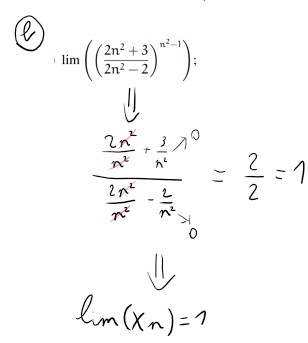 b
lim (((2n² + 3)/(2n² − 2))^(n²−1));
⇓
(2n²/n² + 3/n² ↗ 0)/(2n²/n² − 2/n² ↘ 0) = 2/2 = 1
⇓
lim(Xn)=1